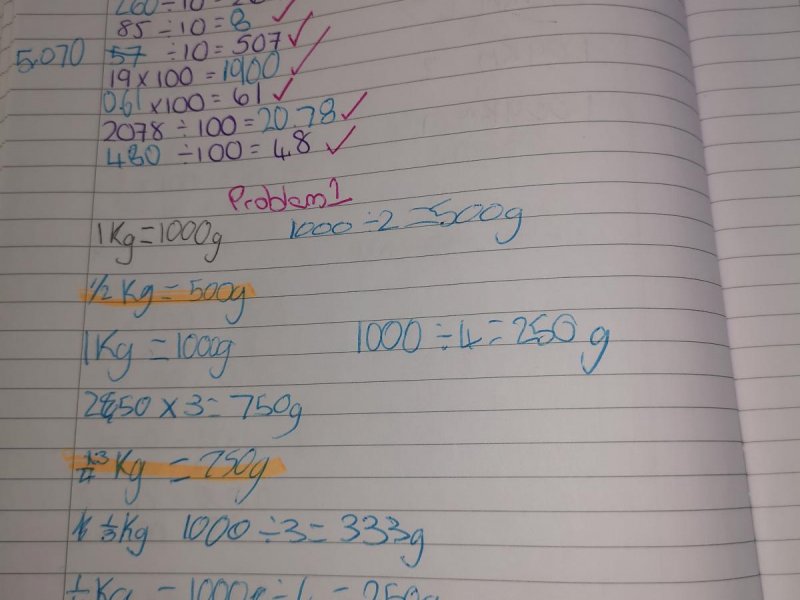 260 ÷ 10 = 26
85 ÷ 10 = 8
5.070 57 ÷ 10 = 507
19 x 100 = 1900
0.61 x 100 = 61
2078 ÷ 100 = 20.78
480 ÷ 100 = 4.8
Problem 1
1Kg = 1000g 1000 ÷ 2 = 500g
1/2 Kg = 500g
1Kg = 1000g 1000 ÷ 4 = 250 g
250 x 3 = 750g
3/4 Kg = 750g
1/3 Kg 1000 ÷ 3 = 333g
Kg = 1000g ÷ 4 = 250g